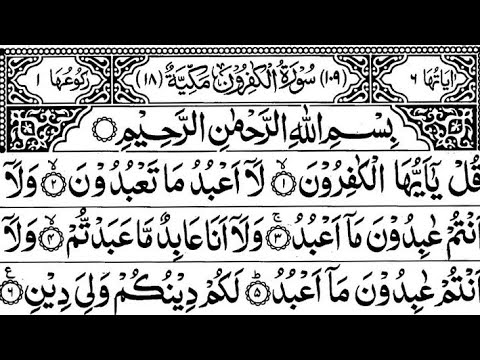 اٰیَاتُهَا ٦ (١٠٩) سُوْرَةُ الْكٰفِرُوْنَ مَكِّیَّةٌ (١٨) رُكُوْعُهَا ١
بِسْمِ اللّٰهِ الرَّحْمٰنِ الرَّحِیْمِ
قُلْ یٰۤاَیُّهَا الْكٰفِرُوْنَ ۙ١ لَاۤ اَعْبُدُ مَا تَعْبُدُوْنَ ۙ٢ وَلَاۤ
اَنْتُمْ عٰبِدُوْنَ مَاۤ اَعْبُدُ ۚ٣ وَلَاۤ اَنَا عَابِدٌ مَّا عَبَدْتُّمْ ۙ٤ وَلَاۤ
اَنْتُمْ عٰبِدُوْنَ مَاۤ اَعْبُدُ ؕ٥ لَكُمْ دِیْنُكُمْ وَلِیَ دِیْنِ ٦ ع